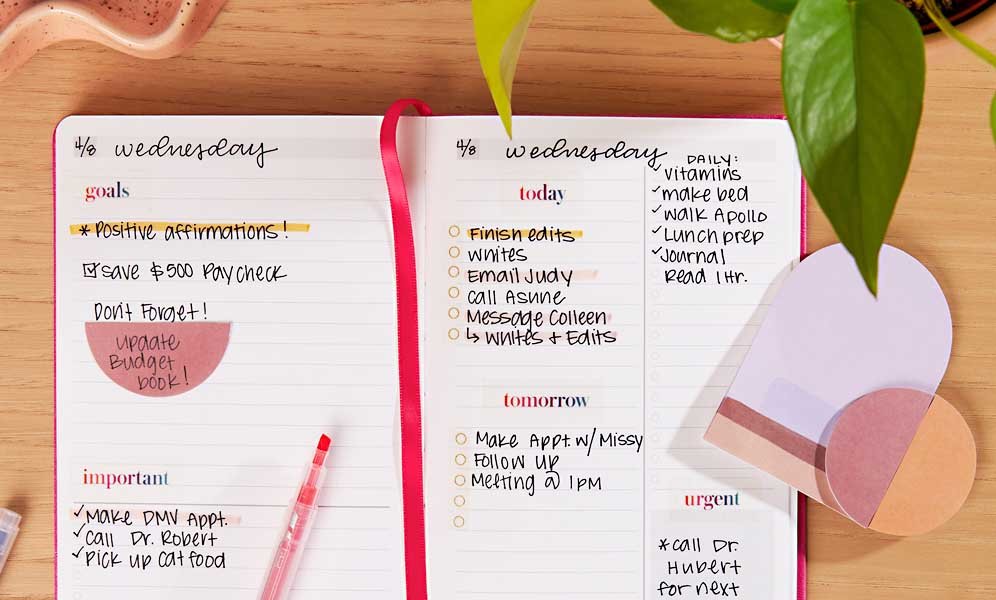 4/8 wednesday
goals
* Positive affirmations!
save $500 Paycheck
Don't Forget!
update
Budget
book!
important
Make DMV Appt.
Call Dr. Robert
Pick up Cat food
4/8 wednesday
today
Finish edits
whites
Email Judy
call Asune
Message Colleen
↳ whites + Edits
tomorrow
Make Appt w/ Missy
Follow up
Meeting @ 1PM
DAILY:
vitamins
make bed
walk Apollo
Lunch prep
Journal
Read 1 Hr.
urgent
*call Dr.
Hubert
for next